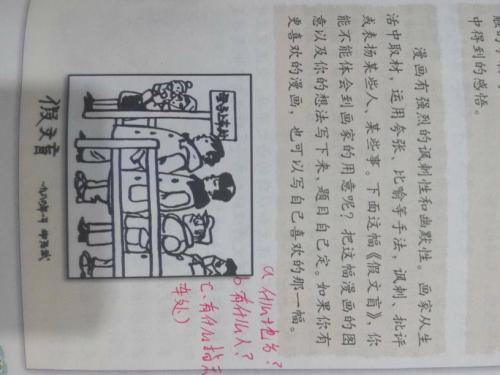 中得到的感悟。
漫画有强烈的讽刺性和幽默性。画家从生
活中取材，运用夸张、比喻等手法，讽刺、批评
或表扬某些人、某些事。下面这幅《假文盲》，你
能不能体会到画家的用意呢？把这幅漫画的图
意以及你的想法写下来，题目自己定。如果你有
更喜欢的漫画，也可以写自己喜欢的那一幅。
a.什么地方？
b.有什么人？
c.有什么指示
母子上车处
假文盲